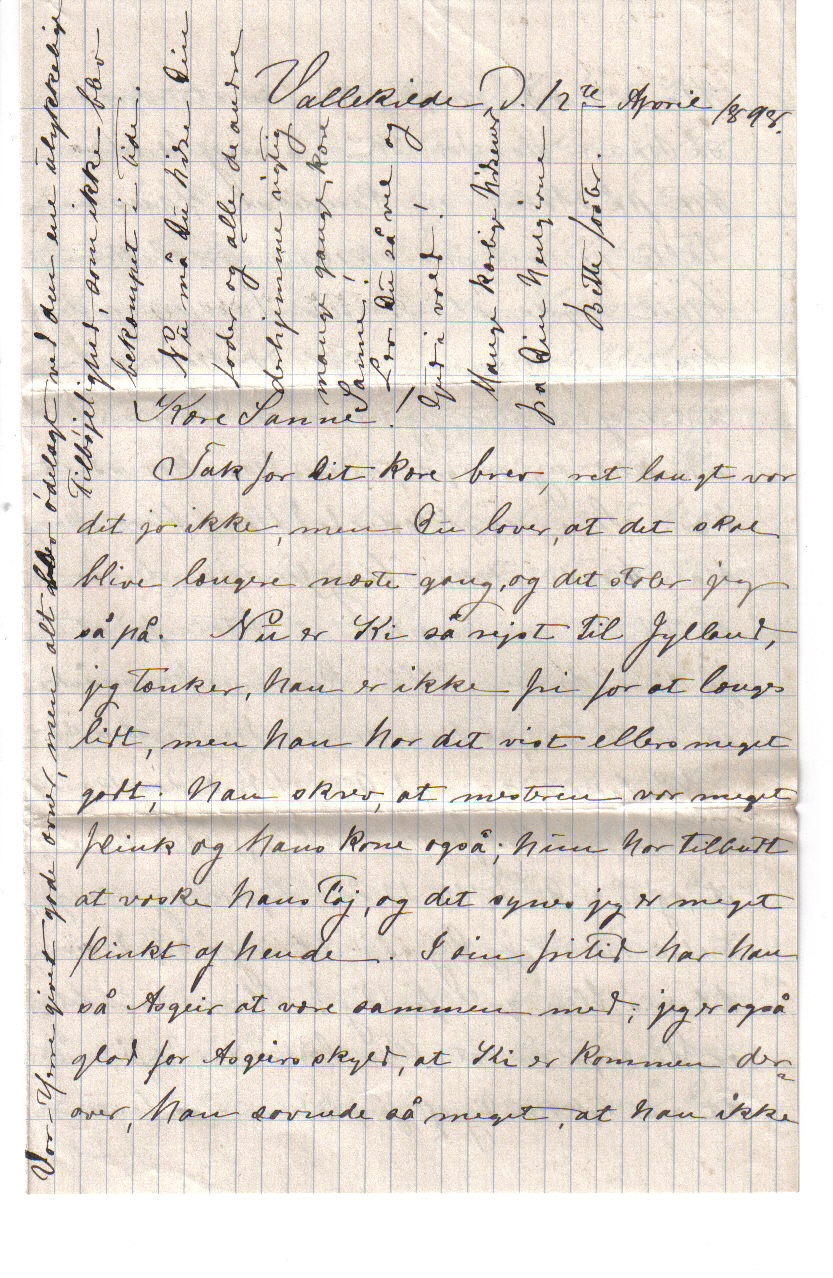 Vallekilde D. 12te April 1898.
Kære Sanne!
Tak for Dit kære brev, ret langt var
det jo ikke, men Du lover, at det skal
blive længere næste gang, og det stoler jeg
så på. Nu er Ki så rejst til Jylland,
jeg tænker, han er ikke fri for at længes
lidt, men han har det vist ellers meget
godt; han skrev, at mesteren var meget
flink og hans kone også; hun har tilbudt
at vaske hans Tøj, og det synes jeg er meget
flinkt af hende. I sin fritid har han
så Asgeir at være sammen med; jeg er også
glad for Asgeirs skyld, at Ki er kommen der-
over, han savnede så meget, at han ikke
givet gode evner, men alt blev ødelagt ved den ene ulykkelige
Tilbøjelighed, som ikke blev
bekæmpet i Tide.
Nu må Du hilse Din
fader og alle de andre
derhjemme rigtig
mange gange, kære
Sanne!
Lev Du så vel og
Gud i vold!
Mange kærlige hilsener
fra Din hengivne
Bette faster.